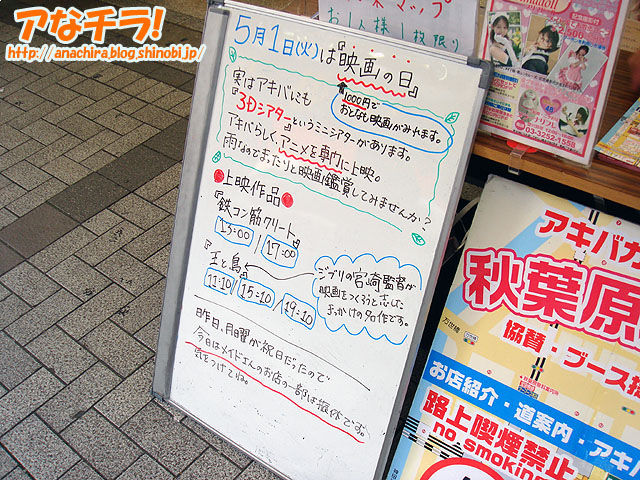 アなチラ!
http://anachira.blog.shinobi.jp/
マップ
お1人様1枚限り
5月1日(火)は『映画の日』
1000円で
おとなも映画がみれます。
実はアキバにも
『3Dシアター』というミニシアターがあります。
アキバらしく、アニメを専門に上映。
雨なのでまったりと映画鑑賞してみませんか?
●上映作品●
『鉄コン筋クリート』
13:00/17:00
『王と鳥』
11:10/15:10/19:10
ジブリの宮崎監督が
映画をつくろうと志した
きっかけの名作です。
昨日、月曜が祝日だったので
今日はメイドさんのお店の一部は振休です。
気をつけてね。
2,500
03-3252-1558
アキバガ
秋葉原
協賛・ブース
お店紹介・道案内・アキバ
路上喫煙禁止
no smoking